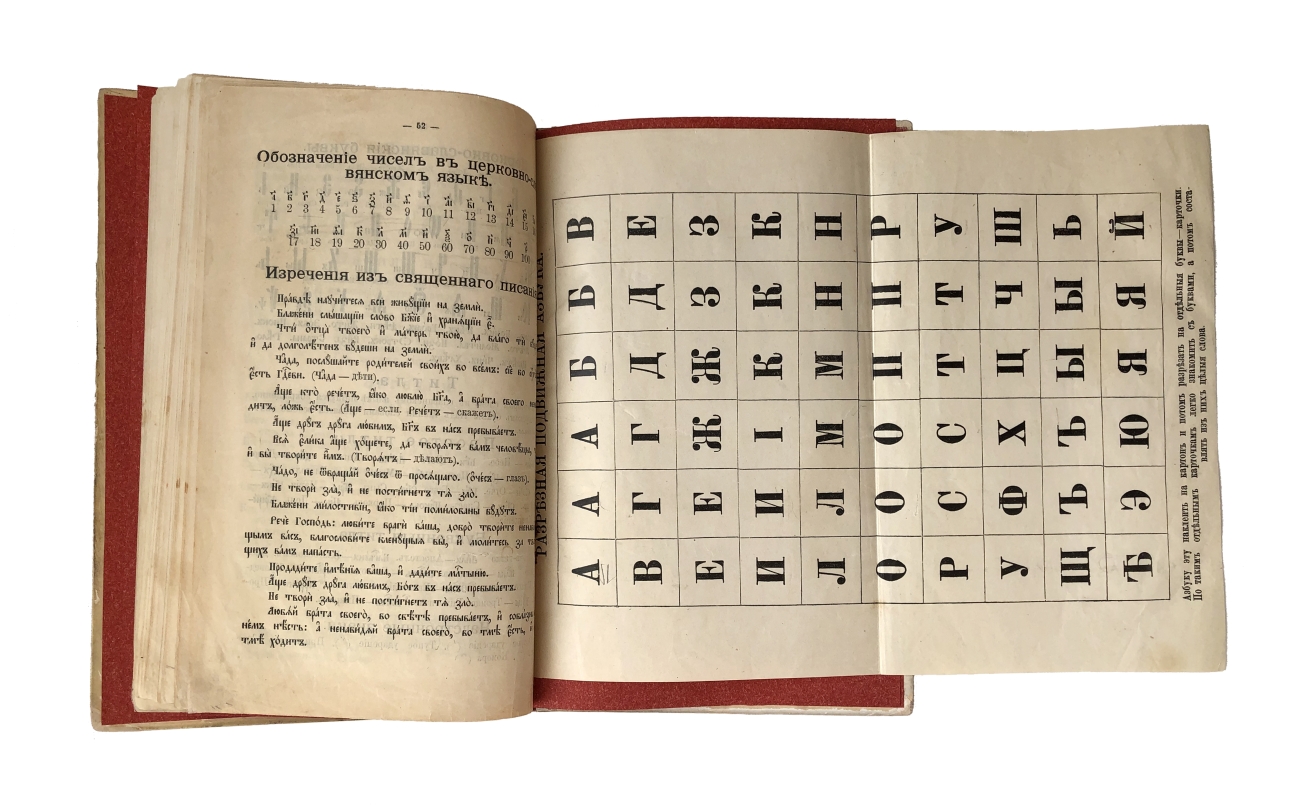 — 52 —
Обозначеніе чиселъ въ церковно-
вянскомъ языкѣ.
1 2 3 4 5 6 7 8 9 10 11 12 13 14 15
17 18 19 20 30 40 50 60 70 80 90 100
Изреченія изъ священнаго писан
Пра́вдѣ научи́теся вси́ живꙋ́щїи на земли́.
Блаже́ни слы́шащїи сло́во Бж҃їе и҆ храня́щїи є҆̀.
Чти́ ѻ҆тца̀ твоего̀ и҆ ма́терь твою̀, да бла́го ти̑
и҆ да долголѣ́тенъ бꙋ́деши на земли́.
Ча̑да, послꙋ́шайте роди́телей свои́хъ во всѣ́мъ: сїѐ во
є҆́сть Гдⷭ҇еви. (Ча̑да — дѣти).
А҆́ще кто̀ рече́тъ, ꙗ҆́кѡ люблю̀ Бг҃а, а҆ бра́та своего̀
ди́тъ, ло́жь є҆́сть. (А҆́ще — если. Рече́тъ — скажетъ).
А҆́ще дрꙋ́гъ дрꙋ́га лю́бимъ, Бг҃ъ въ на́съ пребыва́етъ.
Всѧ̑ є҆ли́ка а҆́ще хо́щете, да творѧ́тъ ва́мъ человѣ́цы,
и҆ вы̀ твори́те и҆̀мъ. (Творѧ́тъ — дѣлаютъ).
Ча́до, не ѿвраща́й ѻ҆че́съ ѿ просѧ́щаго. (Ѻ҆че́съ — глазъ).
Не творѝ зла̀, и҆ не пости́гнетъ тѧ̀ зло̀.
Блаже́ни ми́лостивїи, ꙗ҆́кѡ ті́и поми́ловани бꙋ́дꙋтъ.
Речѐ Госпо́дь: люби́те врагѝ ва́ша, добро̀ твори́те нена
щымъ ва́съ, благослови́те кленꙋ́щыѧ вы̀, и҆ моли́тесь за
щихъ ва́мъ напа́сть.
Прода́дите и҆мѣ̑нїѧ ва̑ша, и҆ дади́те ми́лⷭ҇тыню.
А҆́ще дрꙋ́гъ дрꙋ́га лю́бимъ, Бо́гъ въ на́съ пребыва́етъ.
Не творѝ зла̀, и҆ не пости́гнетъ тѧ̀ зло̀.
Любѧ́й бра́та своего̀, во свѣ́тѣ пребыва́етъ, и҆ собла́з
не́мъ нѣ́сть: а҆ ненави́дѧй бра́та своего̀, во тмѣ̀ є҆́сть, и҆
тмѣ̀ хо́дитъ.
РАЗРѢЗНАЯ ПОДВИЖНАЯ АЗБУКА.
А А А Б Б В
В Г Г Д Д Е
Е Е Ж Ж З З
И И І К К К
Л Л М М Н Н
О О О П П Р
Р С С Т Т У
У Ф Х Ц Ч Ш
Щ Ъ Ъ Ы Ы Ь
Ѣ Э Ю Я Я Й
Азбуку эту наклеить на картонъ и потомъ разрѣзать на отдѣльныя буквы—карточки.
По такимъ отдѣльнымъ карточкамъ легко знакомить съ буквами, а потомъ соста-
влять изъ нихъ цѣлыя слова.